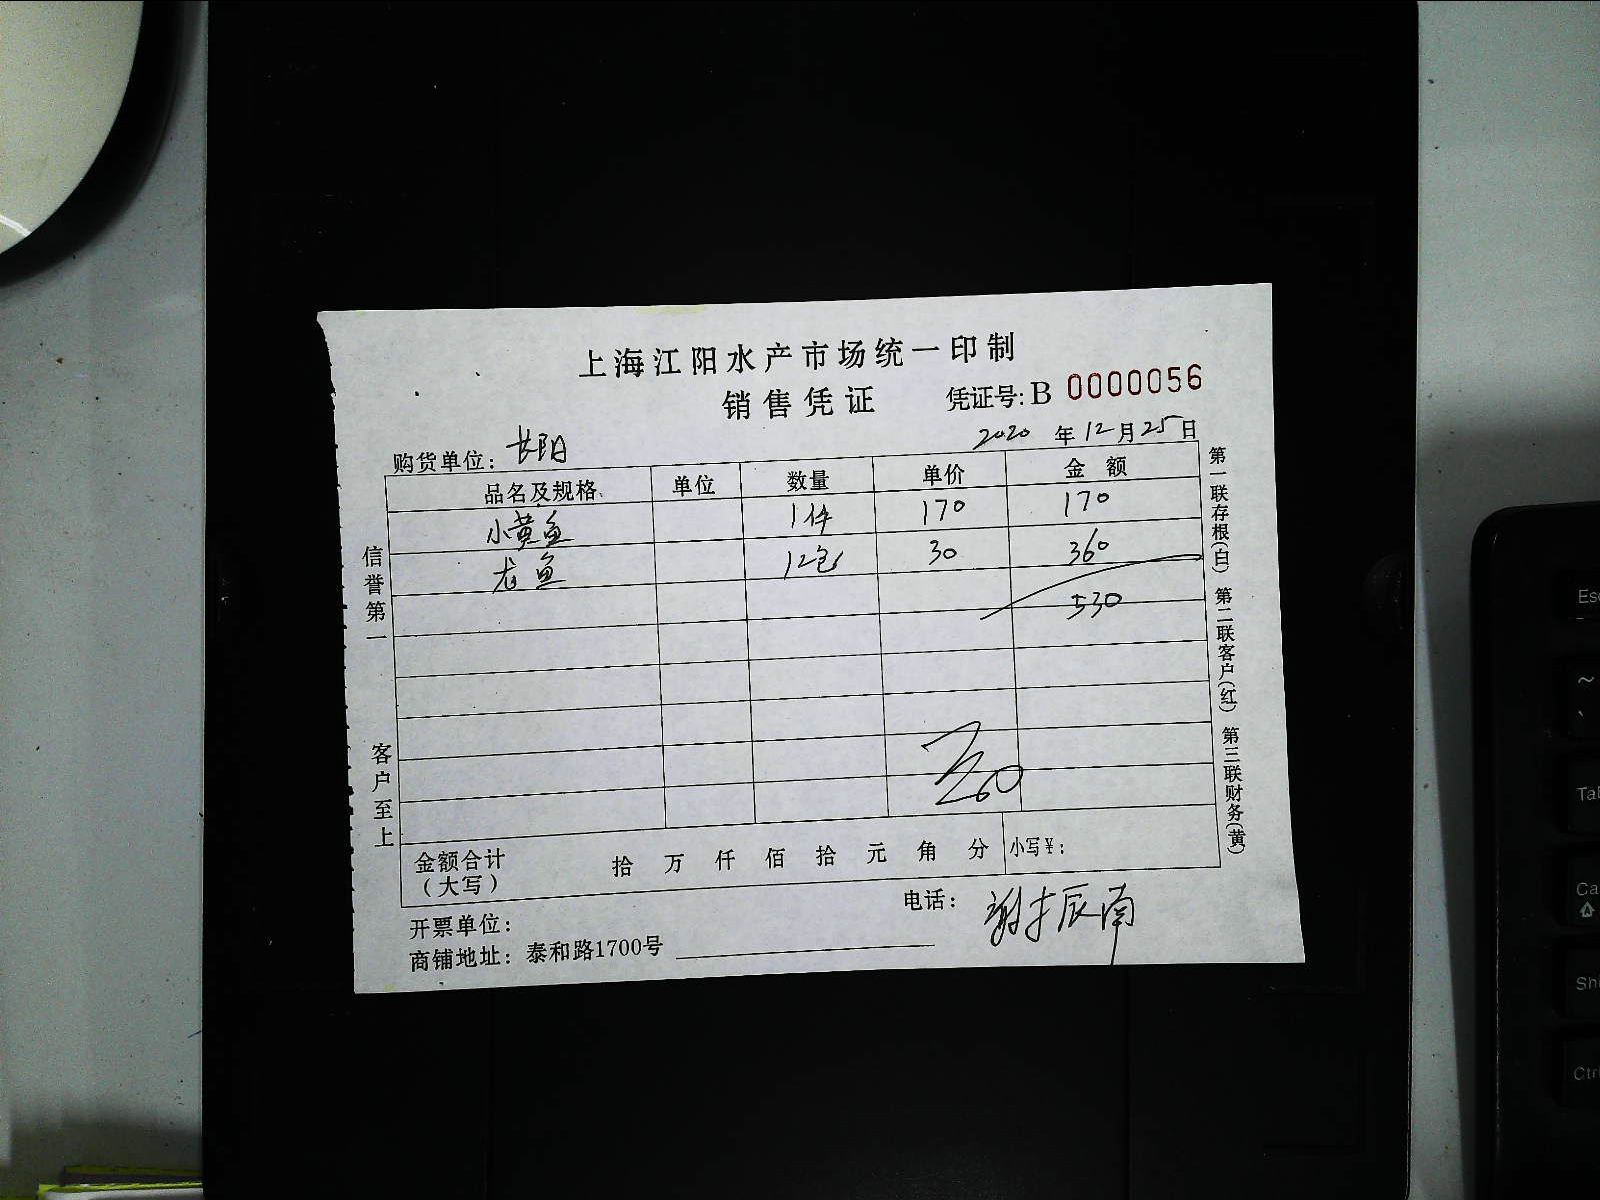 上海江阳水产市场统一印制
销售凭证 凭证号: B 0000056
购货单位: 长阳 2020 年 12 月 25 日
品名及规格 单位 数量 单价 金额
小黄鱼 1件 170 170
龙鱼 12包 30 360
530
信誉第一
客户至上
第一联存根(白) 第二联客户(红) 第三联财务(黄)
金额合计(大写) 拾 万 仟 佰 拾 元 角 分 小写¥:
开票单位: 电话:
商铺地址: 泰和路1700号